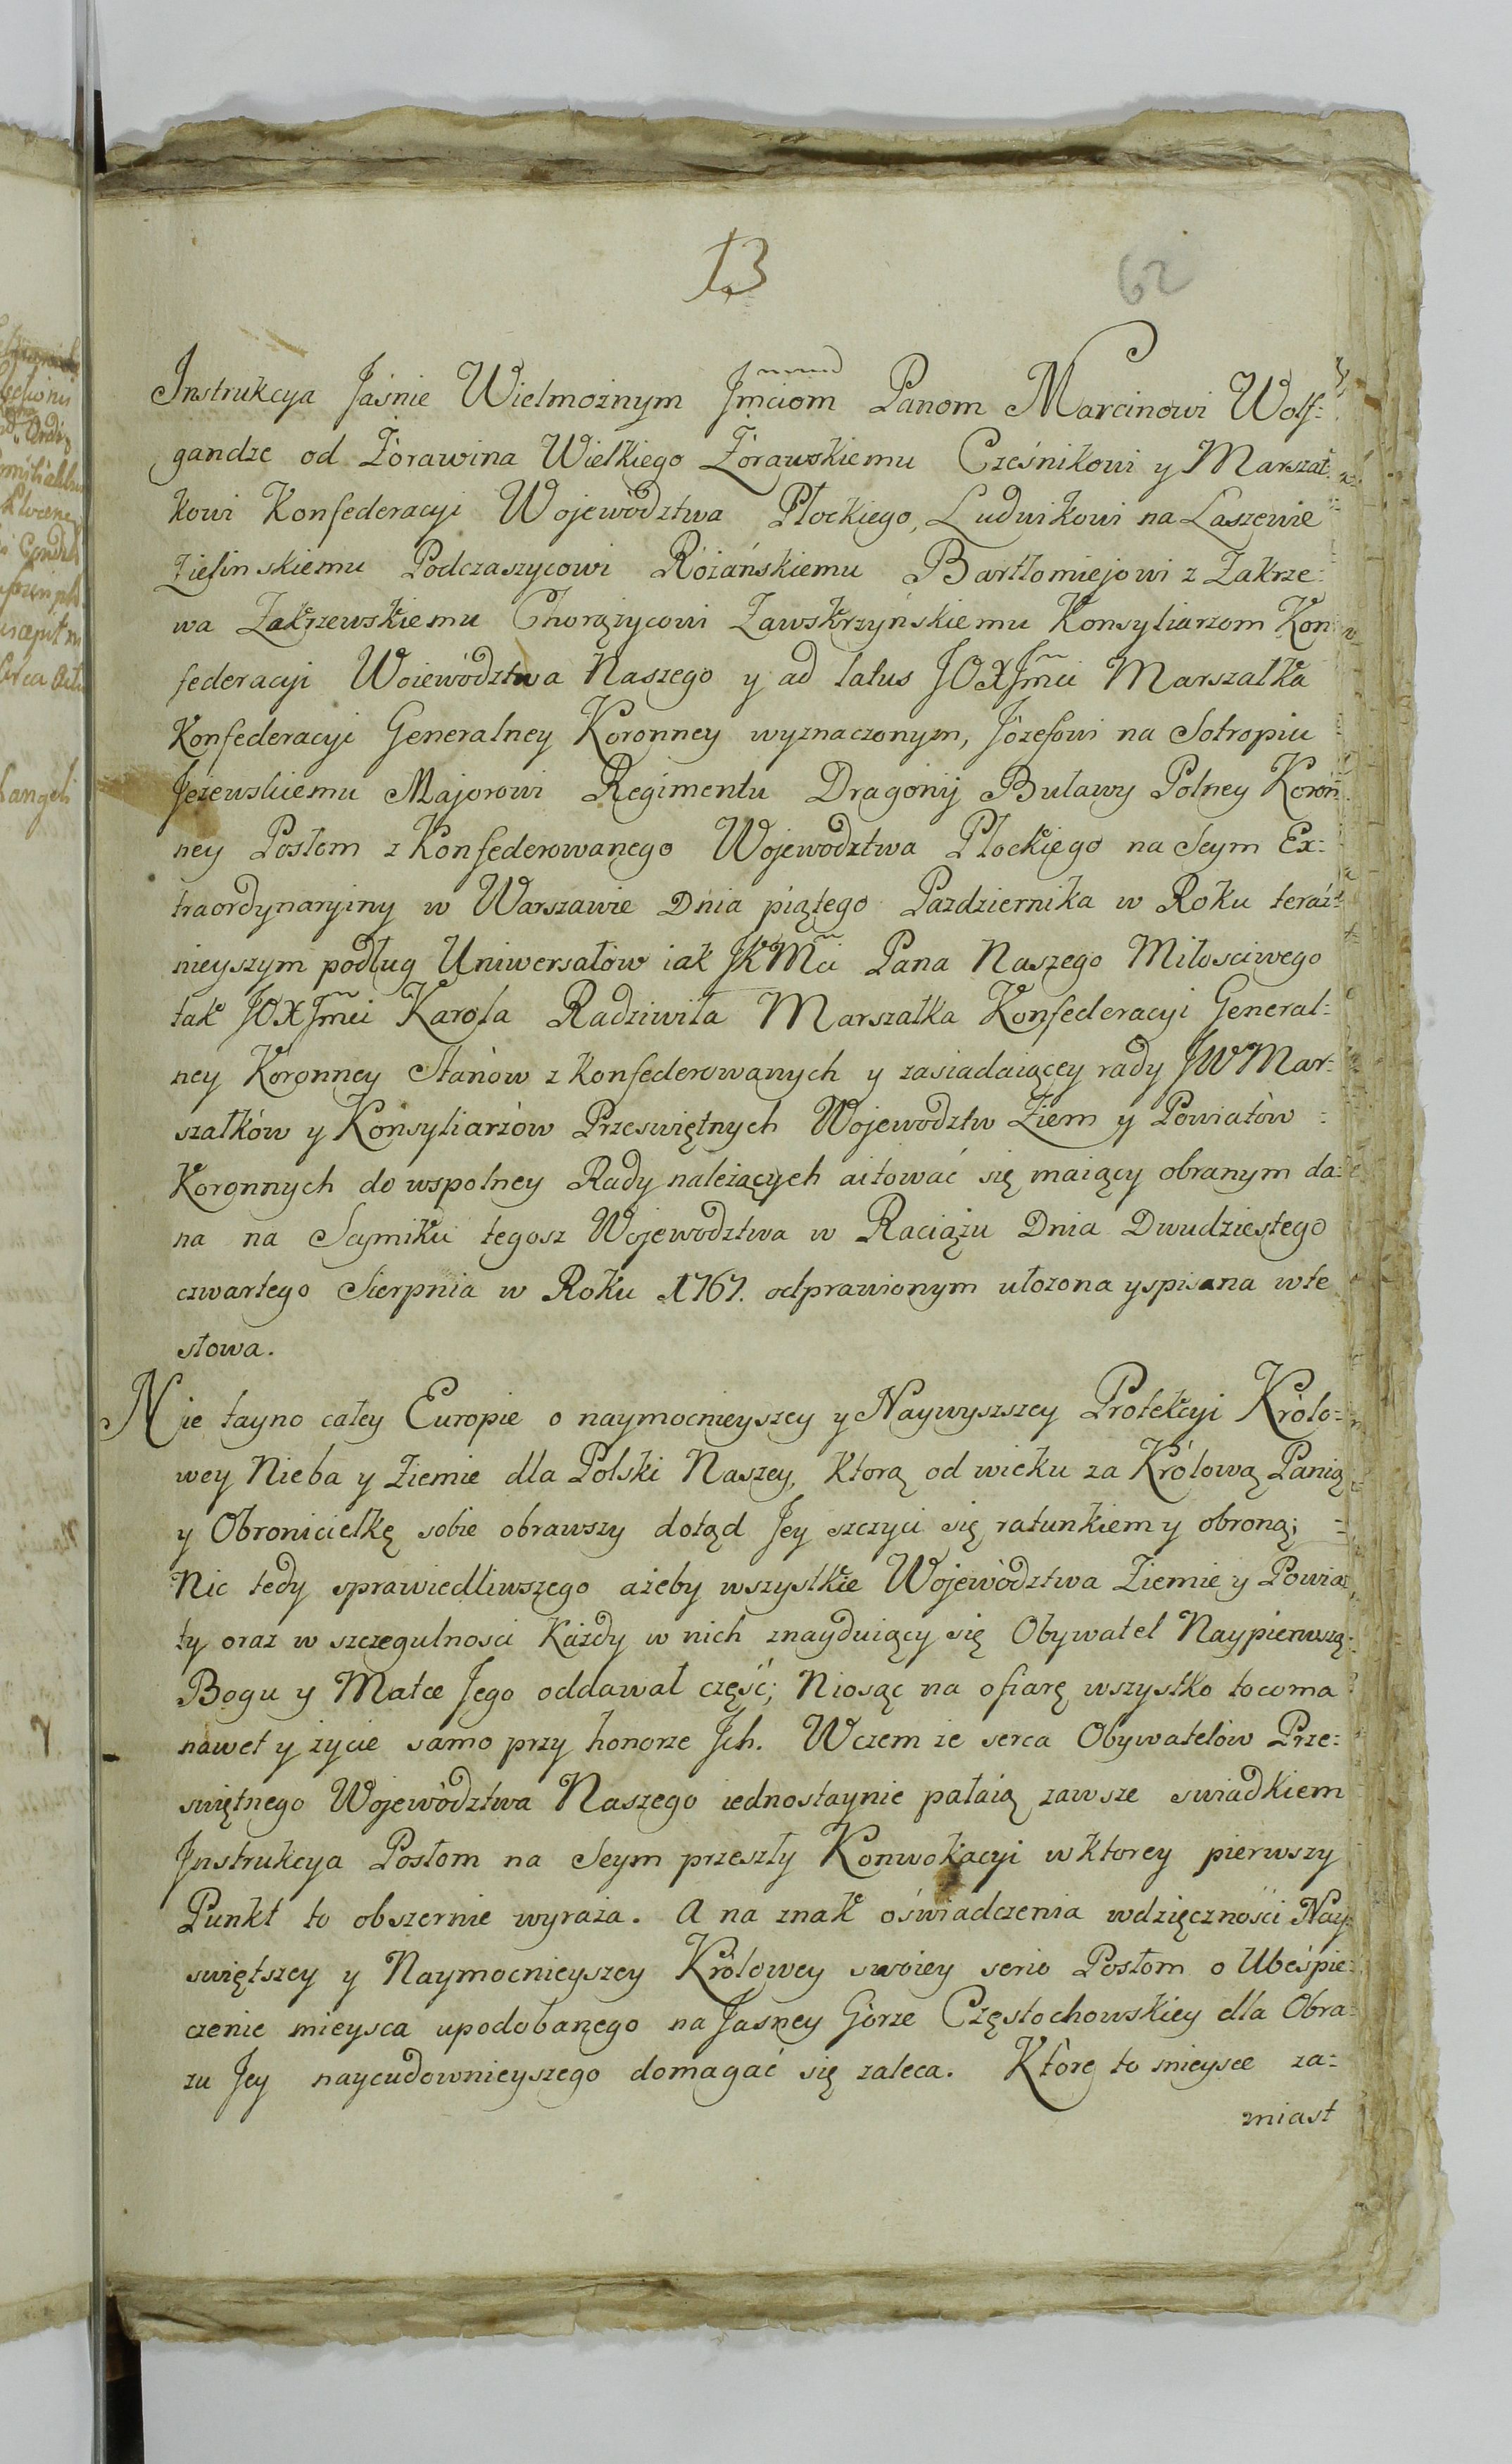 13
62
Instrukcya Jaśnie Wielmożnym Jmciom Panom Marcinowi Wolf:
gandze od Żórawina Wielkiego Żórawskiemu Cześnikowi y Marszał:
kowi Konfederacyi Województwa Płockiego, Ludwikowi na Laszewie
Zielinskiemu Podczaszycowi Różańskiemu Bartłomiejowi z Zakrze:
wa Zakrzewskiemu Chorążycowi Zawskrzyńskiemu Konsyliarzom Kon
federacyi Woiewództwa Naszego y ad latus JOXJmci Marszałka
Konfederacyi Generalney Koronney wyznaczonym, Józefowi na Sotropiu
Jeżewskiemu Majorowi Regimentu Dragonij Buławy Polney Koron
ney Posłom z Konfederowanego Województwa Płockiego na Seym Ex:
traordynaryiny w Warszawie Dnia piątego Pazdziernika w Roku teraź
nieyszym podług Uniwersałów iak JKMci Pana Naszego Miłosciwego
tak JOXJmci Karola Radziwiła Marszałka Konfederacyi General:
ney Koronney Stanów z konfederowanych y zasiadaiącey rady JW Mar:
szałków y Konsyliarzów Przeswiętnych Województw Ziem y Powiatów
Koronnych do wspolney Rady należących aitować się maiący obranym da:
na na Seymiku tegosz Województwa w Raciążu Dnia Dwudziestego
czwartego Sierpnia w Roku 1767. odprawionym ułozona y spisana w te
słowa.
Nie tayno całey Europie o naymocnieyszey y Naywyszszey Protekcyi Królo:
wey Nieba y Ziemie dla Polski Naszey, ktorą od wieku za Królową Panią
y Obronicielkę sobie obrawszy dotąd Jey szczyci się ratunkiem y obroną;
Nic tedy sprawiedliwszego ażeby wszystkie Województwa Ziemie y Powia:
ty oraz w szczegulnosci Każdy w nich znayduiący się Obywatel Naypierwszą
Bogu y Matce Jego oddawał część; Niosąc na ofiarę wszystko to co ma
nawet y życie samo przy honorze Jch. W czem że serca Obywatelów Prze:
swiętnego Województwa Naszego iednostaynie pałaią zawsze swiadkiem
Jnstrukcya Posłom na Seym przeszły Konwokacyi w ktorey pierwszy
Punkt to obszernie wyraża. A na znak oświadczenia wdzięcznośći Nay:
swiętszey y Naymocnieyszey Królowey swoiey serio Posłom o Ubeśpie:
czenie mieysca upodobanego na Jasney Górze Częstochowskiey dla Obra:
zu Jey naycudownieyszego domagać się zaleca. Któré to mieysce za:
miast